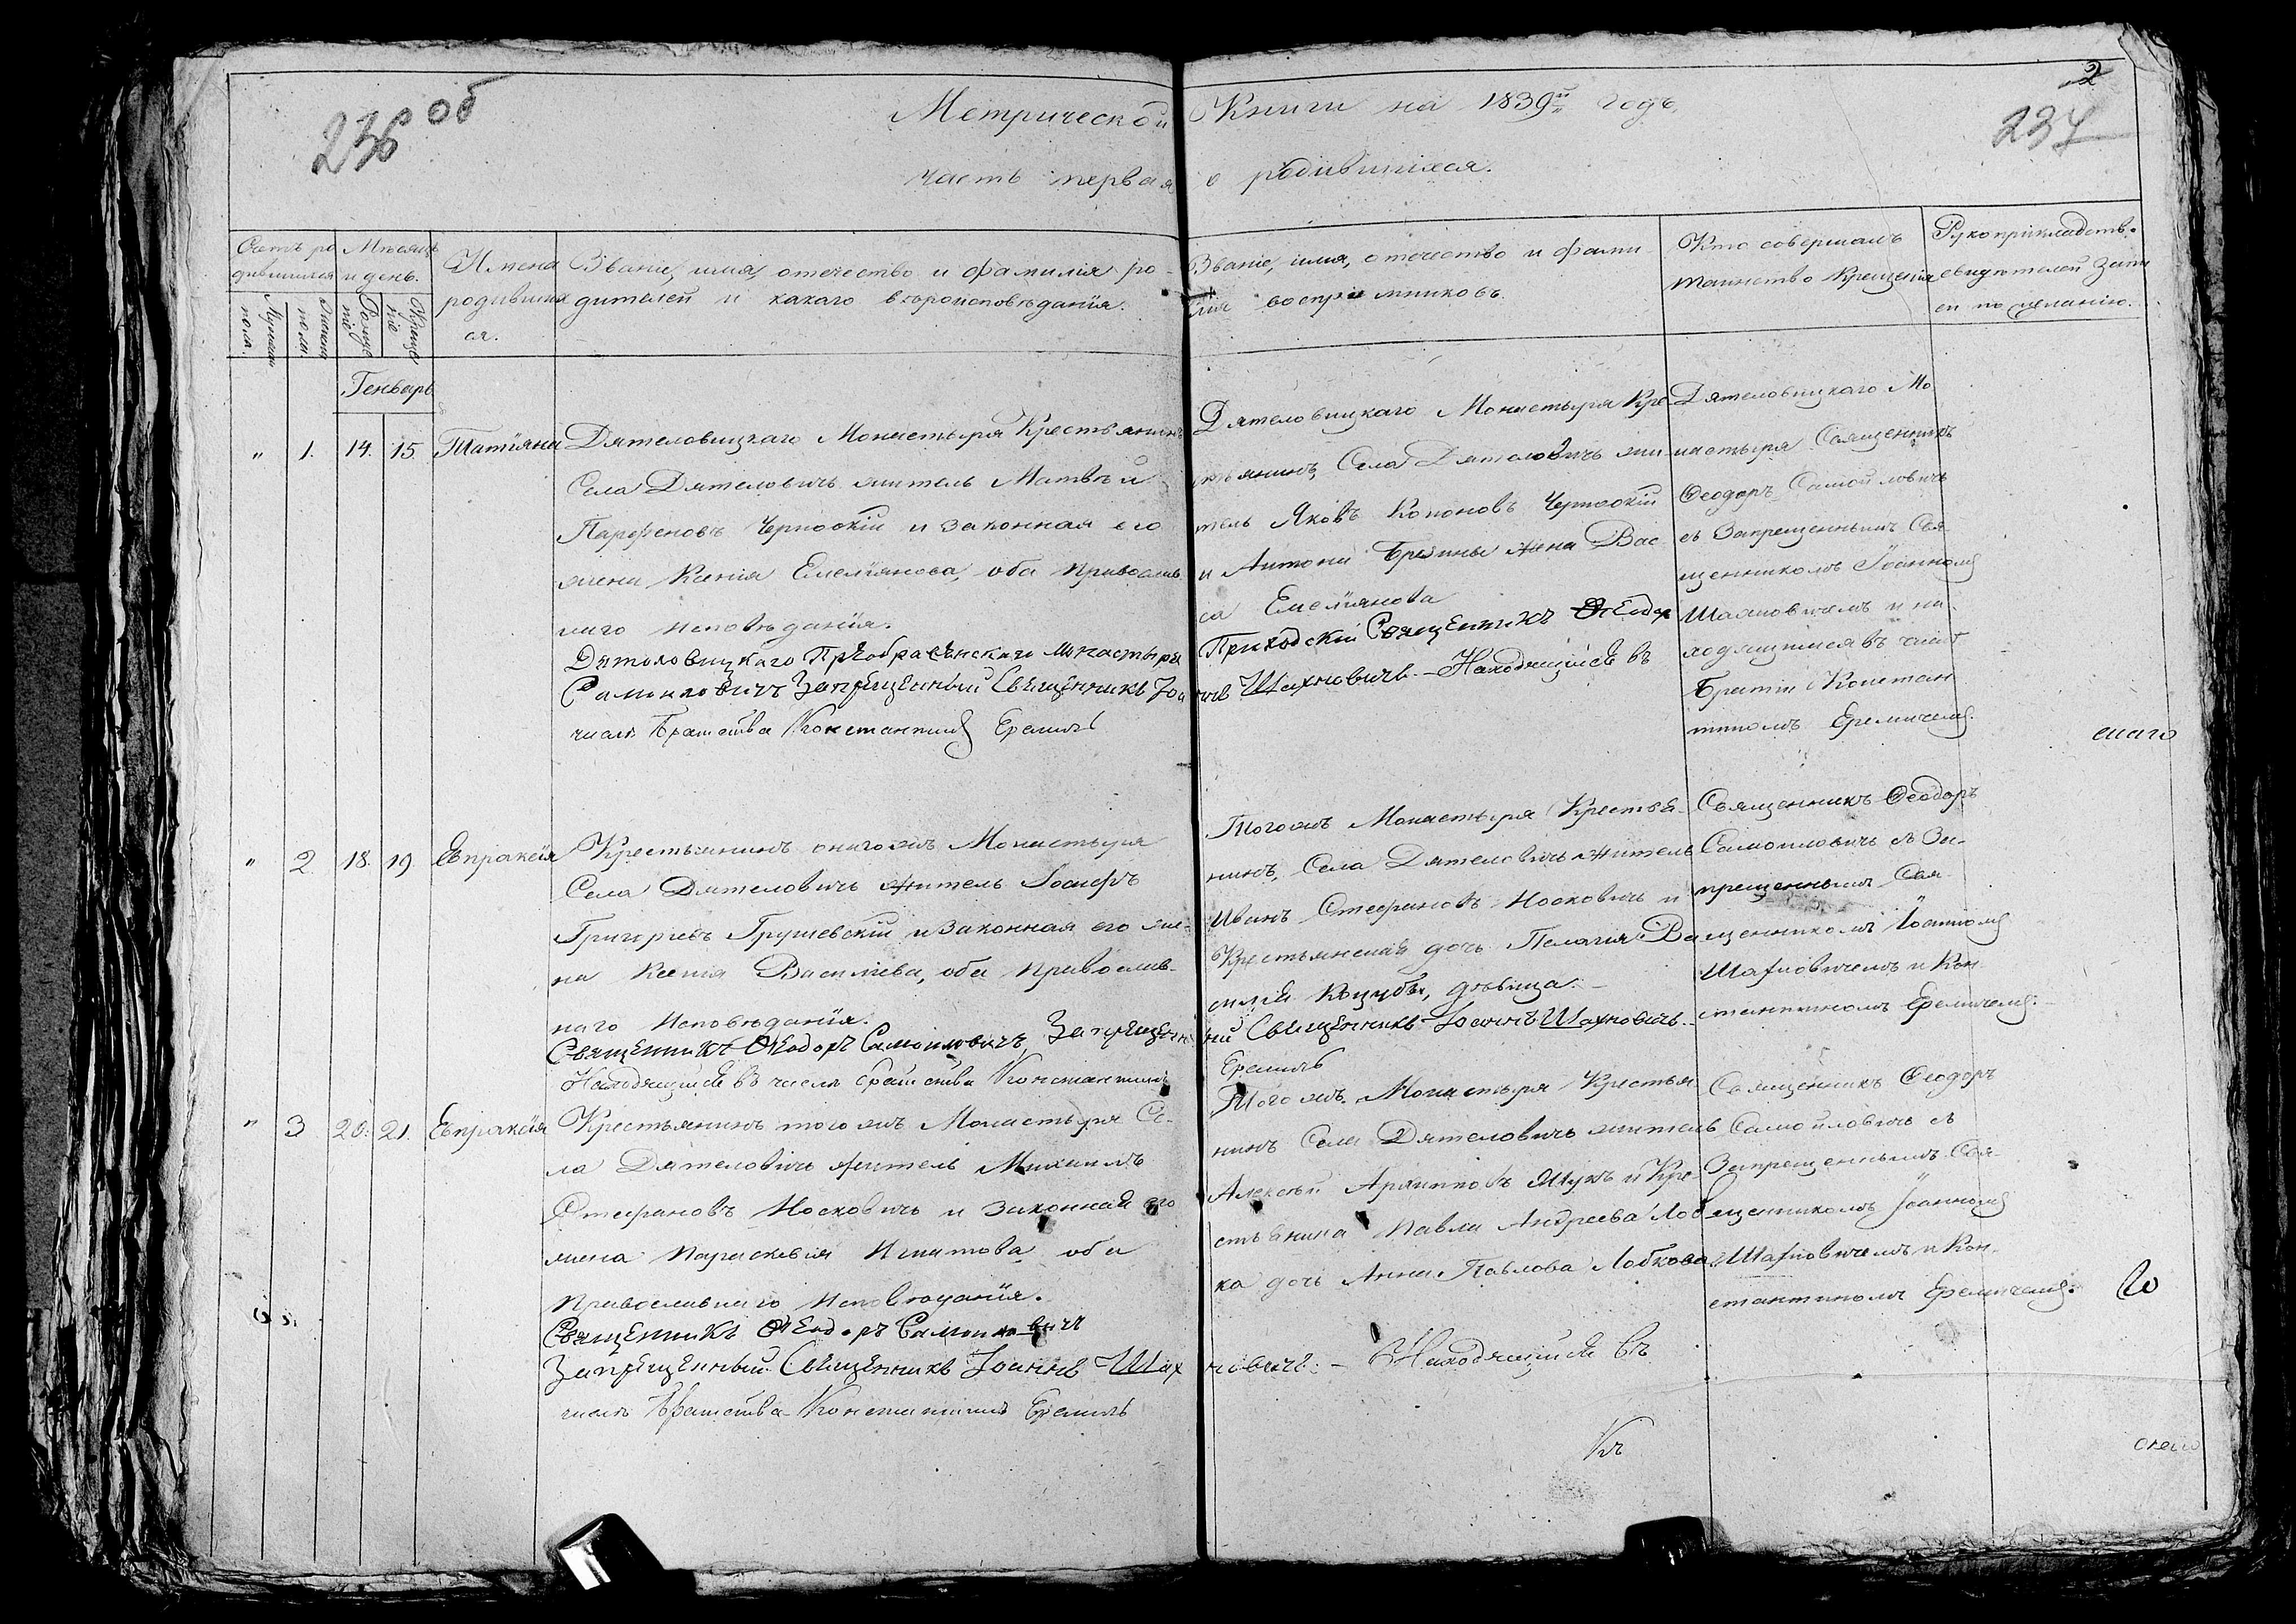 236 об
Метрической Книги на 1839й годъ
2
237
часть первая о родившихся.
Счетъ ро
дившихся
Мужеска
пола.
Женска
пола
Мѣсяцъ
и день.
Рожде
нiе
Креще
нiе
Имена
родивших
ся.
Званiе, имя, отечество и фамилiя ро-
дителей и какаго вѣроисповѣданiя.
Званiе, имя, отечество и фами
лiя воспрiемниковъ.
Кто совершалъ
таинство Крещенiя
Рукоприкладство
свидѣтелей запи
си по желанiю.
Генварь
" 1. 14. 15. Татiяна
Дятеловицкаго Монастыря Крестьянинъ
Села Дятеловичъ житель Матвѣй
Парфеновъ Черноокiй и законная его
жена Ксенiя Емелiянова, оба православ
наго исповѣданiя.
Дятеловицкаго Преображенскаго Монастыря
Самоиловичъ Запрещенный Священникъ Iоа
числѣ Братства Константинъ Еремичъ
Дятеловицкаго Монастыря Кре
стьянинъ, Села Дятеловичъ жи
тель Яковъ Кононовъ Чернокiй
и Антона Брезины жена Вас
са Емелiянова
Приходскiй Священникъ Ѳеодор
ннъ Шахновичъ. - Находящийся въ
Дятеловицкаго Мо
настыря Священникъ
Ѳеодоръ Самойловичъ
съ Запрещеннымъ Свя
щенникомъ Iоанномъ
Шахновичемъ и на
ходящимся въ числѣ
Братiи Констан
тиномъ Еремичемъ.
" 2. 18. 19. Евпраксiя
Крестьянинъ онагожъ Монастыря
Села Дятеловичъ житель Iосифъ
Григорьевъ Грушевскiй и законная его же-
на Ксенiя Василiева, оба православ-
наго исповѣданiя.
Священникъ Ѳеодоръ Самоиловичъ, Запрещен
Находящийся въ числѣ братства Константинъ
Тогожъ Монастыря Крестья-
нинъ, Села Дятеловичъ житель
Иванъ Стефановъ Носковичъ и
Крестьянская дочь Пелагiя Ва
силiя Коцубы, дѣвица. -
ный Священникъ Iоаннъ Шахновичъ. -
Еремичъ
Священникъ Ѳеодоръ
Самоиловичъ съ За-
прещеннымъ Свя-
щенникомъ Iоанномъ
Шахновичемъ и Кон-
стантиномъ Еремичемъ.
" 3 20. 21. Евпраксiя
Крестьянинъ тогожъ Монастыря Се-
ла Дятеловичъ житель Михаилъ
Стефановъ Носковичъ и законная его
жена Параскевiя Игнатова оба
православнаго исповѣданiя.
Священникъ Ѳеодоръ Самоиловичъ
Запрещенный Священникъ Iоаннъ Шах
числѣ Братства Константинъ Еремичъ
Тогожъ Монастыря Крестья-
нинъ Села Дятеловичъ житель
Алексѣй Архиповъ Жукъ и Кре-
стьянина Павла Андреева Лоб
ка дочь Анна Павлова Лобкова
новичъ. - Находящийся въ
Священникъ Ѳеодоръ
Самойловичъ съ
Запрещеннымъ Свя-
щенникомъ Iоанномъ
Шахновичемъ и Кон-
стантиномъ Еремичемъ.